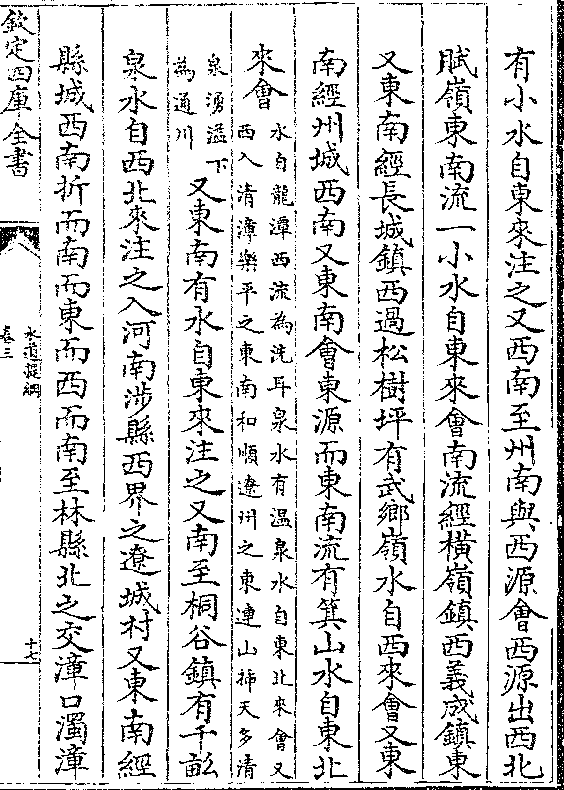 有小水自東來注之又西南至州南與西源會西源出西北
賦嶺東南流一小水自東來會南流經橫嶺鎮西義成鎮東
又東南經長城鎮西過松樹坪有武鄉嶺水自西來會又東
南經州城西南又東南會東源而東南流有箕山水自東北
來會水自龍潭西流為洗耳泉水有温泉水自東北來會又
西入清漳樂平之東南和順遼州之東連山梆天多清
泉湧溢下
為通川
又東南有水自東來注之又南至桐谷鎮有千畝
泉水自西北來注之入河南涉縣西界之遼城村又東南經
縣城西南折而南而東而西而南至林縣北之交漳口濁漳
欽定四庫全書
水道提綱
卷三
十七